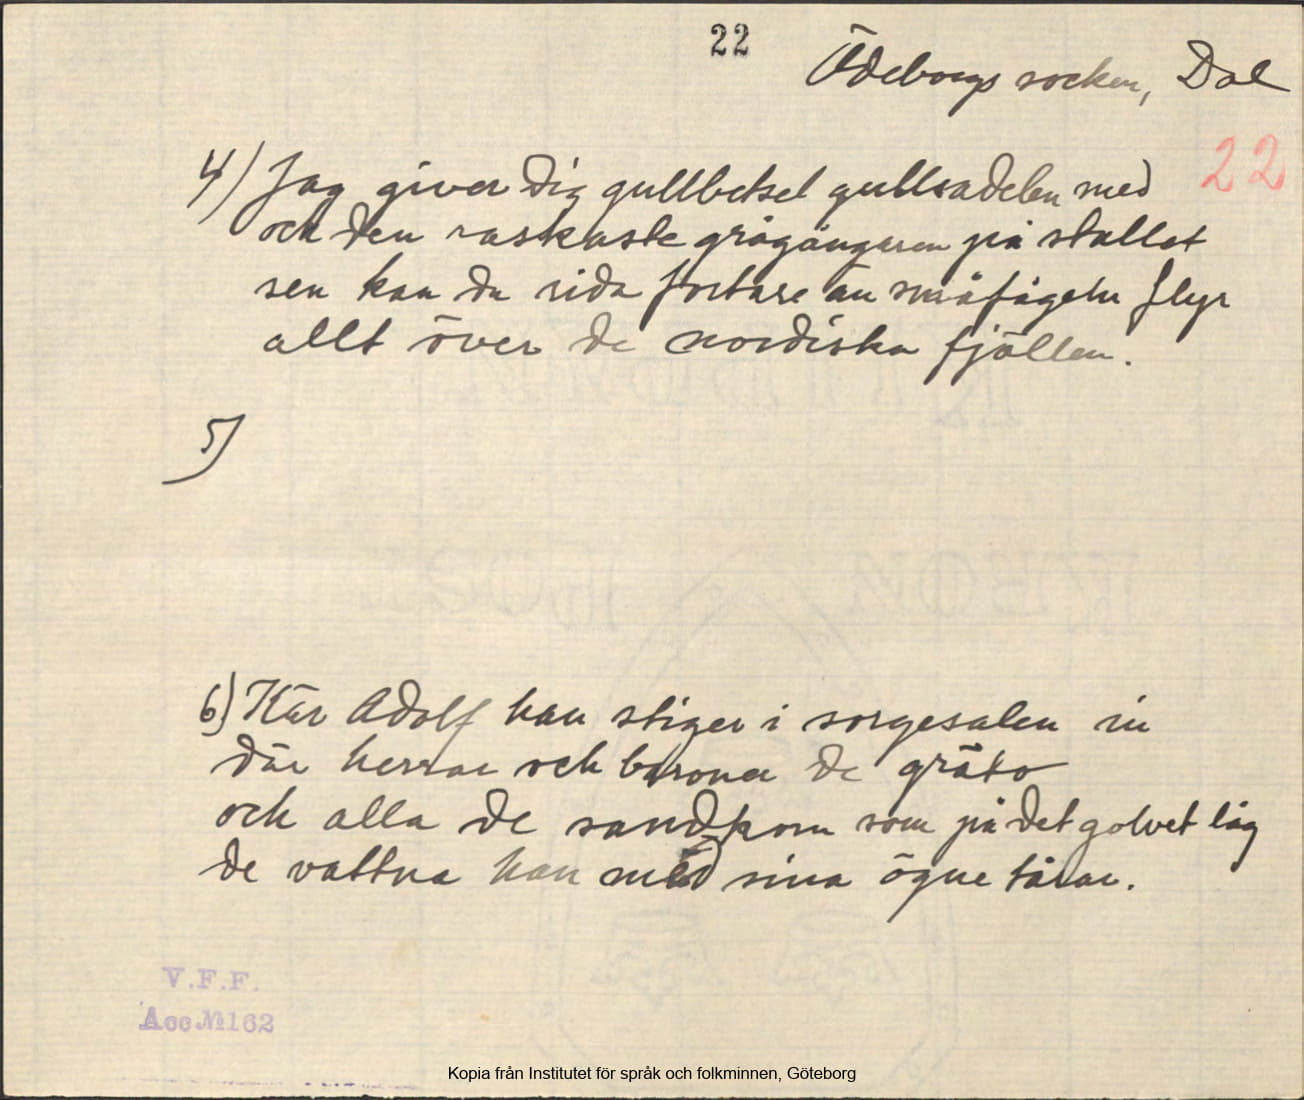 22
Ödeborgs socken, Dal
22
4) Jag giver dig gullbetsel gullsadelen med
och den raskaste grågångaren på stallet
sen kan du rida fortare än småfågeln flyr
allt över de nordiska fjällen.
5)
6) Kär Adolf han stiger i sorgesalen in
där herrar och baroner de gräto
och alla de sandkorn som på det golvet låg
de vattna han med sina ögne tårar.
V.F.F.
Acc № 162
Kopia från Institutet för språk och folkminnen, Göteborg